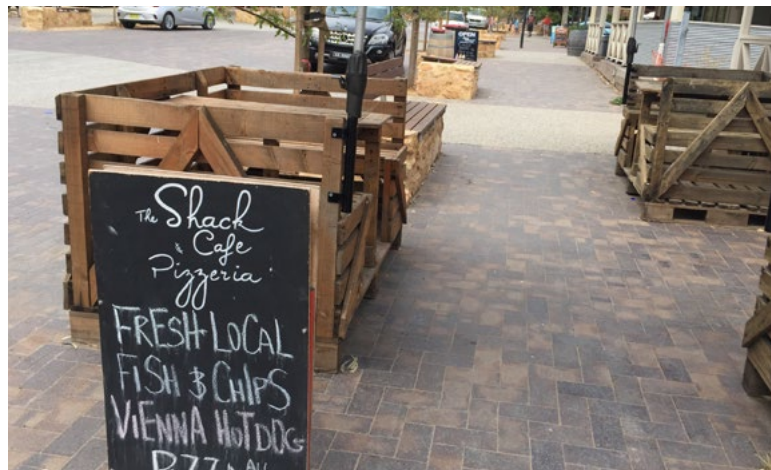 The Shack
& Cafe
Pizzeria
FRESH LOCAL
FISH & CHIPS
VIENNA HOTDOG
OPEN